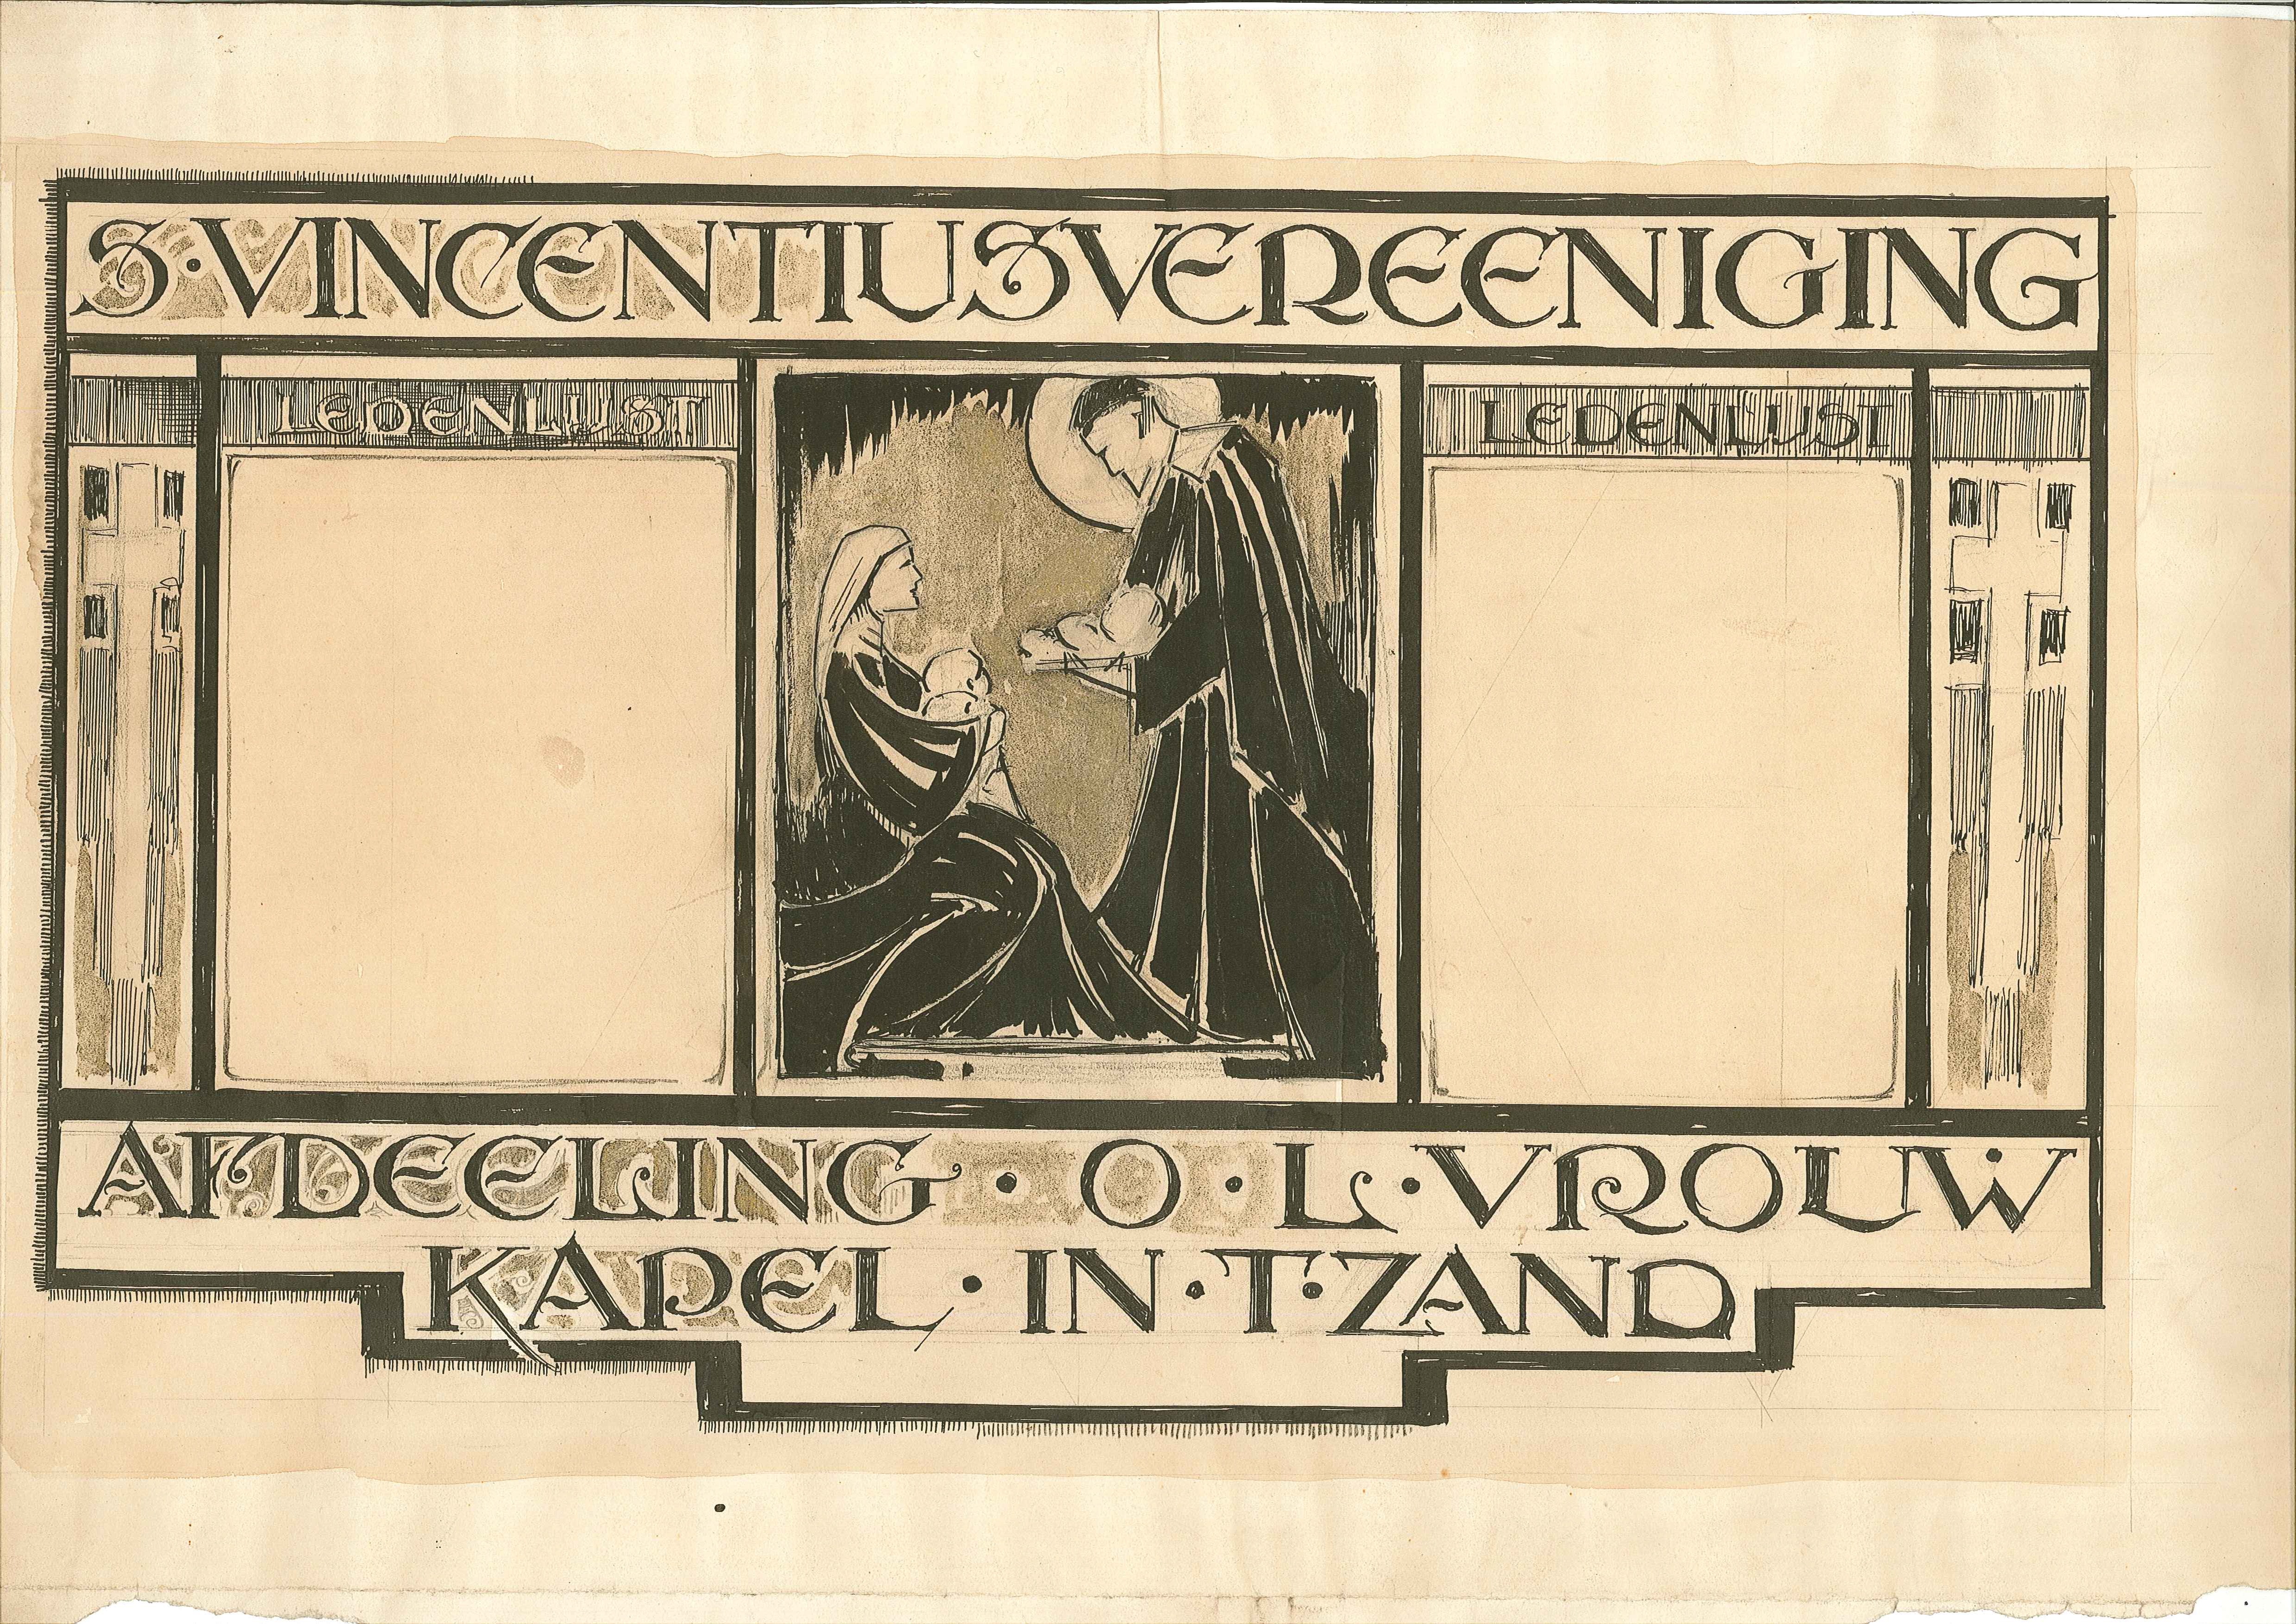 S·VINCENTIUSVEREENIGING
LEDENLIJST
LEDENLIJST
AFDEELING · O · L · VROUW
KAPEL · IN · T · ZAND